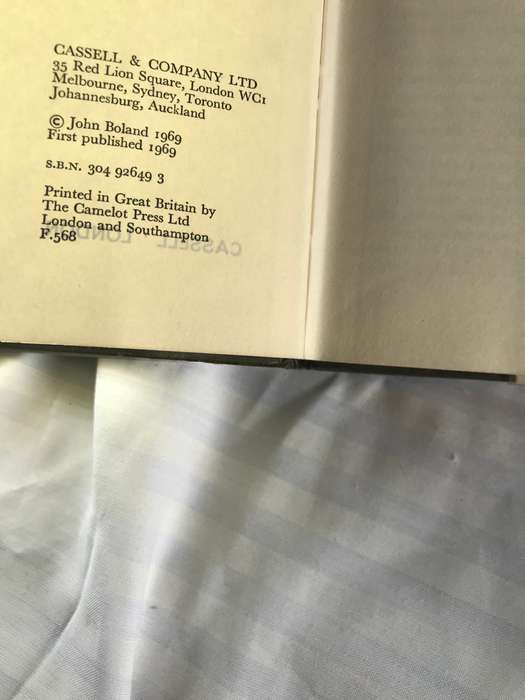 CASSELL & COMPANY LTD
35 Red Lion Square, London WC1
Melbourne, Sydney, Toronto
Johannesburg, Auckland
© John Boland 1969
First published 1969
S.B.N. 304 92649 3
Printed in Great Britain by
The Camelot Press Ltd
London and Southampton
F.568
CASSELL LONDON